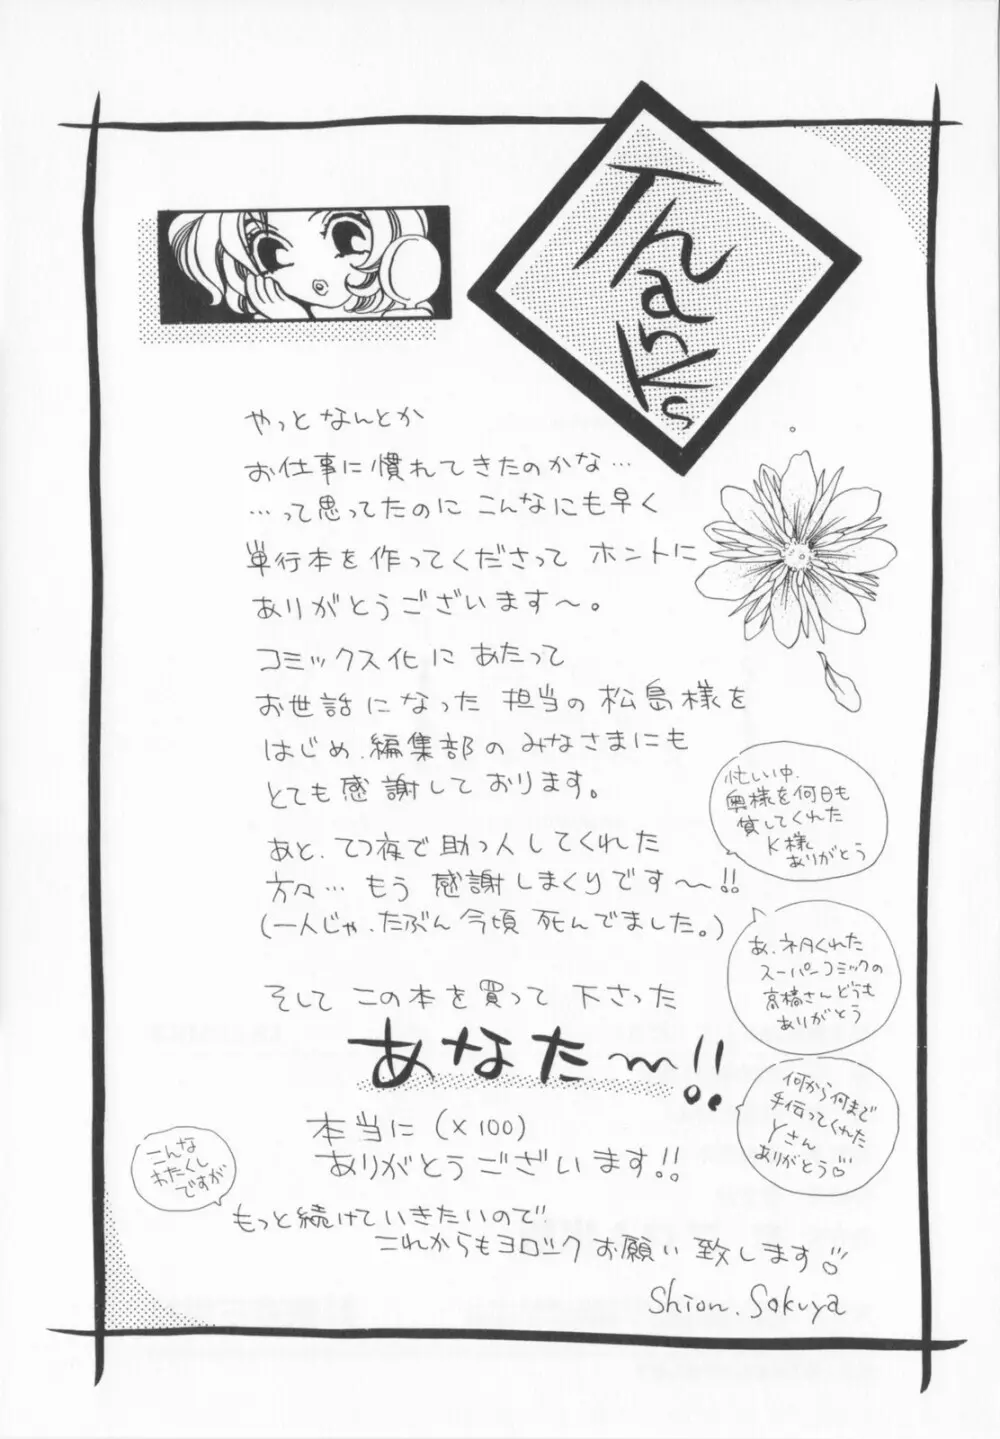 Thanks
やっとなんとか
お仕事に慣れてきたのかな…
…って思ってたのに こんなにも早く
単行本を作ってくださって ホントに
ありがとうございます〜。
コミックス化に あたって
お世話になった 担当の松島様を
はじめ、編集部のみなさまにも
とても感謝しております。
あと、てつ夜で助っ人してくれた
方々… もう 感謝しまくりです〜!!
(一人じゃ、たぶん今頃 死んでました。)
忙しい中、
奥様を何日も
貸してくれた
K様
ありがとう
あ、ネタくれた
スーパーコミックの
高橋さんどうも
ありがとう
何から何まで
手伝ってくれた
Yさん
ありがとう♡
そして この本を買って 下さった
あなた〜!!
本当に (×100)
ありがとうございます!!
こんな
わたくし
ですが
もっと続けていきたいので
これからもヨロシク お願い致します♡
Shion.Sakuya